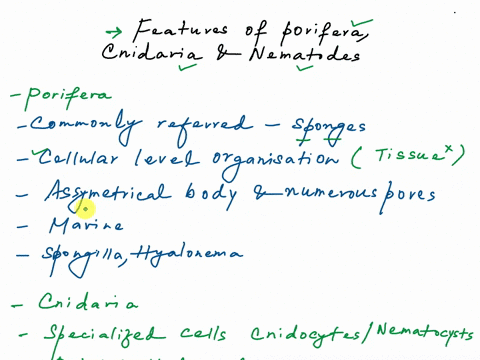 → Features of porifera,
Cnidaria & Nematodes
- Porifera
- Commonly referred - Sponges
- Cellular level organisation ( Tissue x )
- Assymetrical body & numerous pores
- Marine
- Spongilla, Hyalonema
- Cnidaria
- Specialized cells Cnidocytes/Nematocysts